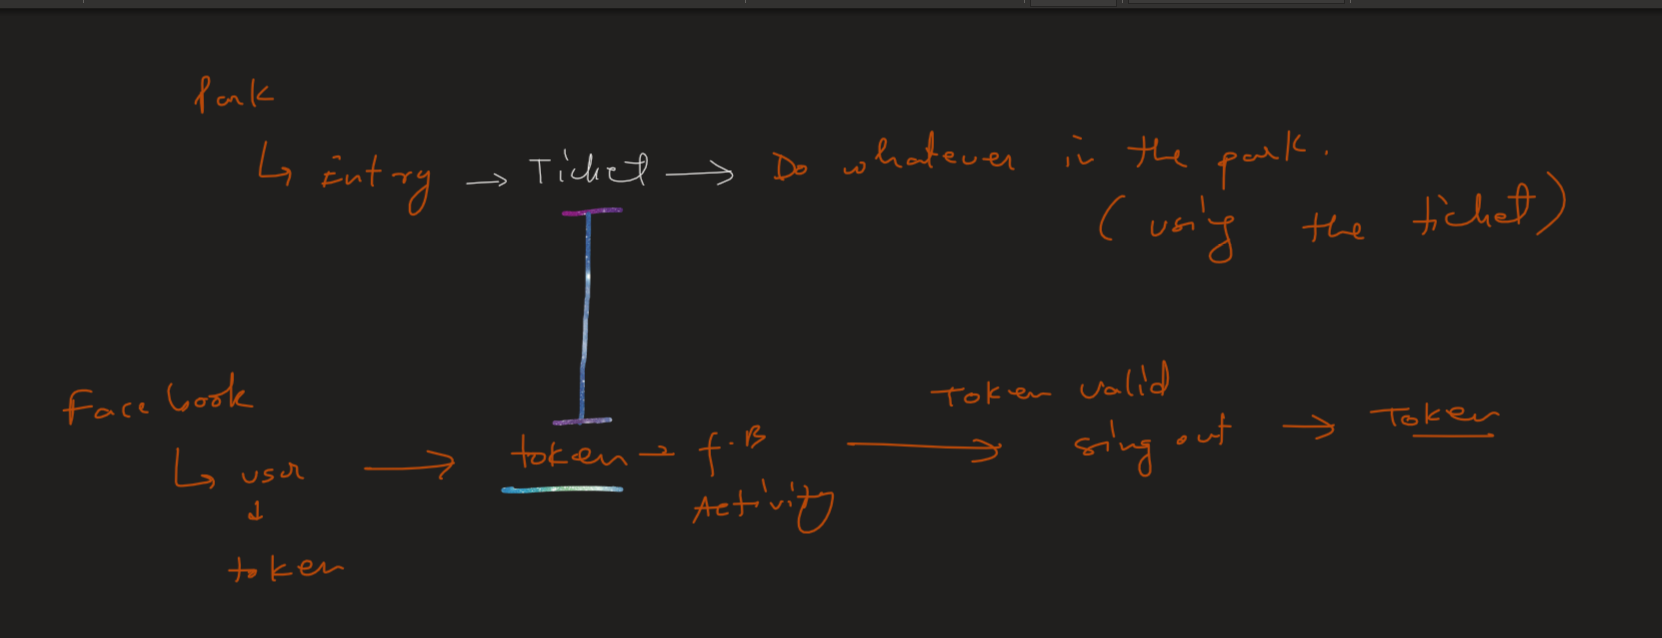 Park
↳ Entry → Ticket → Do whatever in the park.
(using the ticket)
Facebook
↳ user → token → f.B Activity → Token valid sing out → Token
↓
token